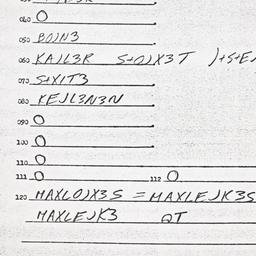 040 O
050 BOJN3
060 KAJL3R S+OJX3T
070 S+XIT3
080 KEJL3N3N
090 O
100 O
110 O
111 O 112 O
120 MAXLOJX3S = MAXLEJK3S
MAXLEJK3 QT